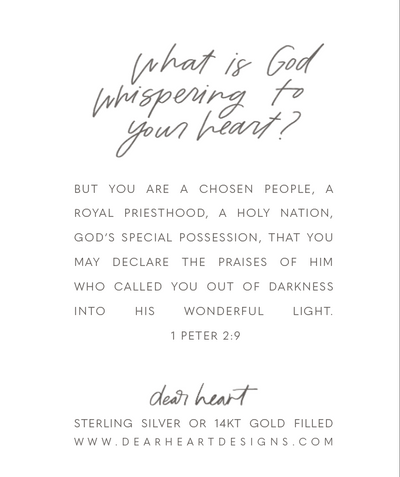 What is God
whispering to
your heart?
BUT YOU ARE A CHOSEN PEOPLE, A
ROYAL PRIESTHOOD, A HOLY NATION,
GOD'S SPECIAL POSSESSION, THAT YOU
MAY DECLARE THE PRAISES OF HIM
WHO CALLED YOU OUT OF DARKNESS
INTO HIS WONDERFUL LIGHT.
1 PETER 2:9
dear heart
STERLING SILVER OR 14KT GOLD FILLED
WWW.DEARHEARTDESIGNS.COM